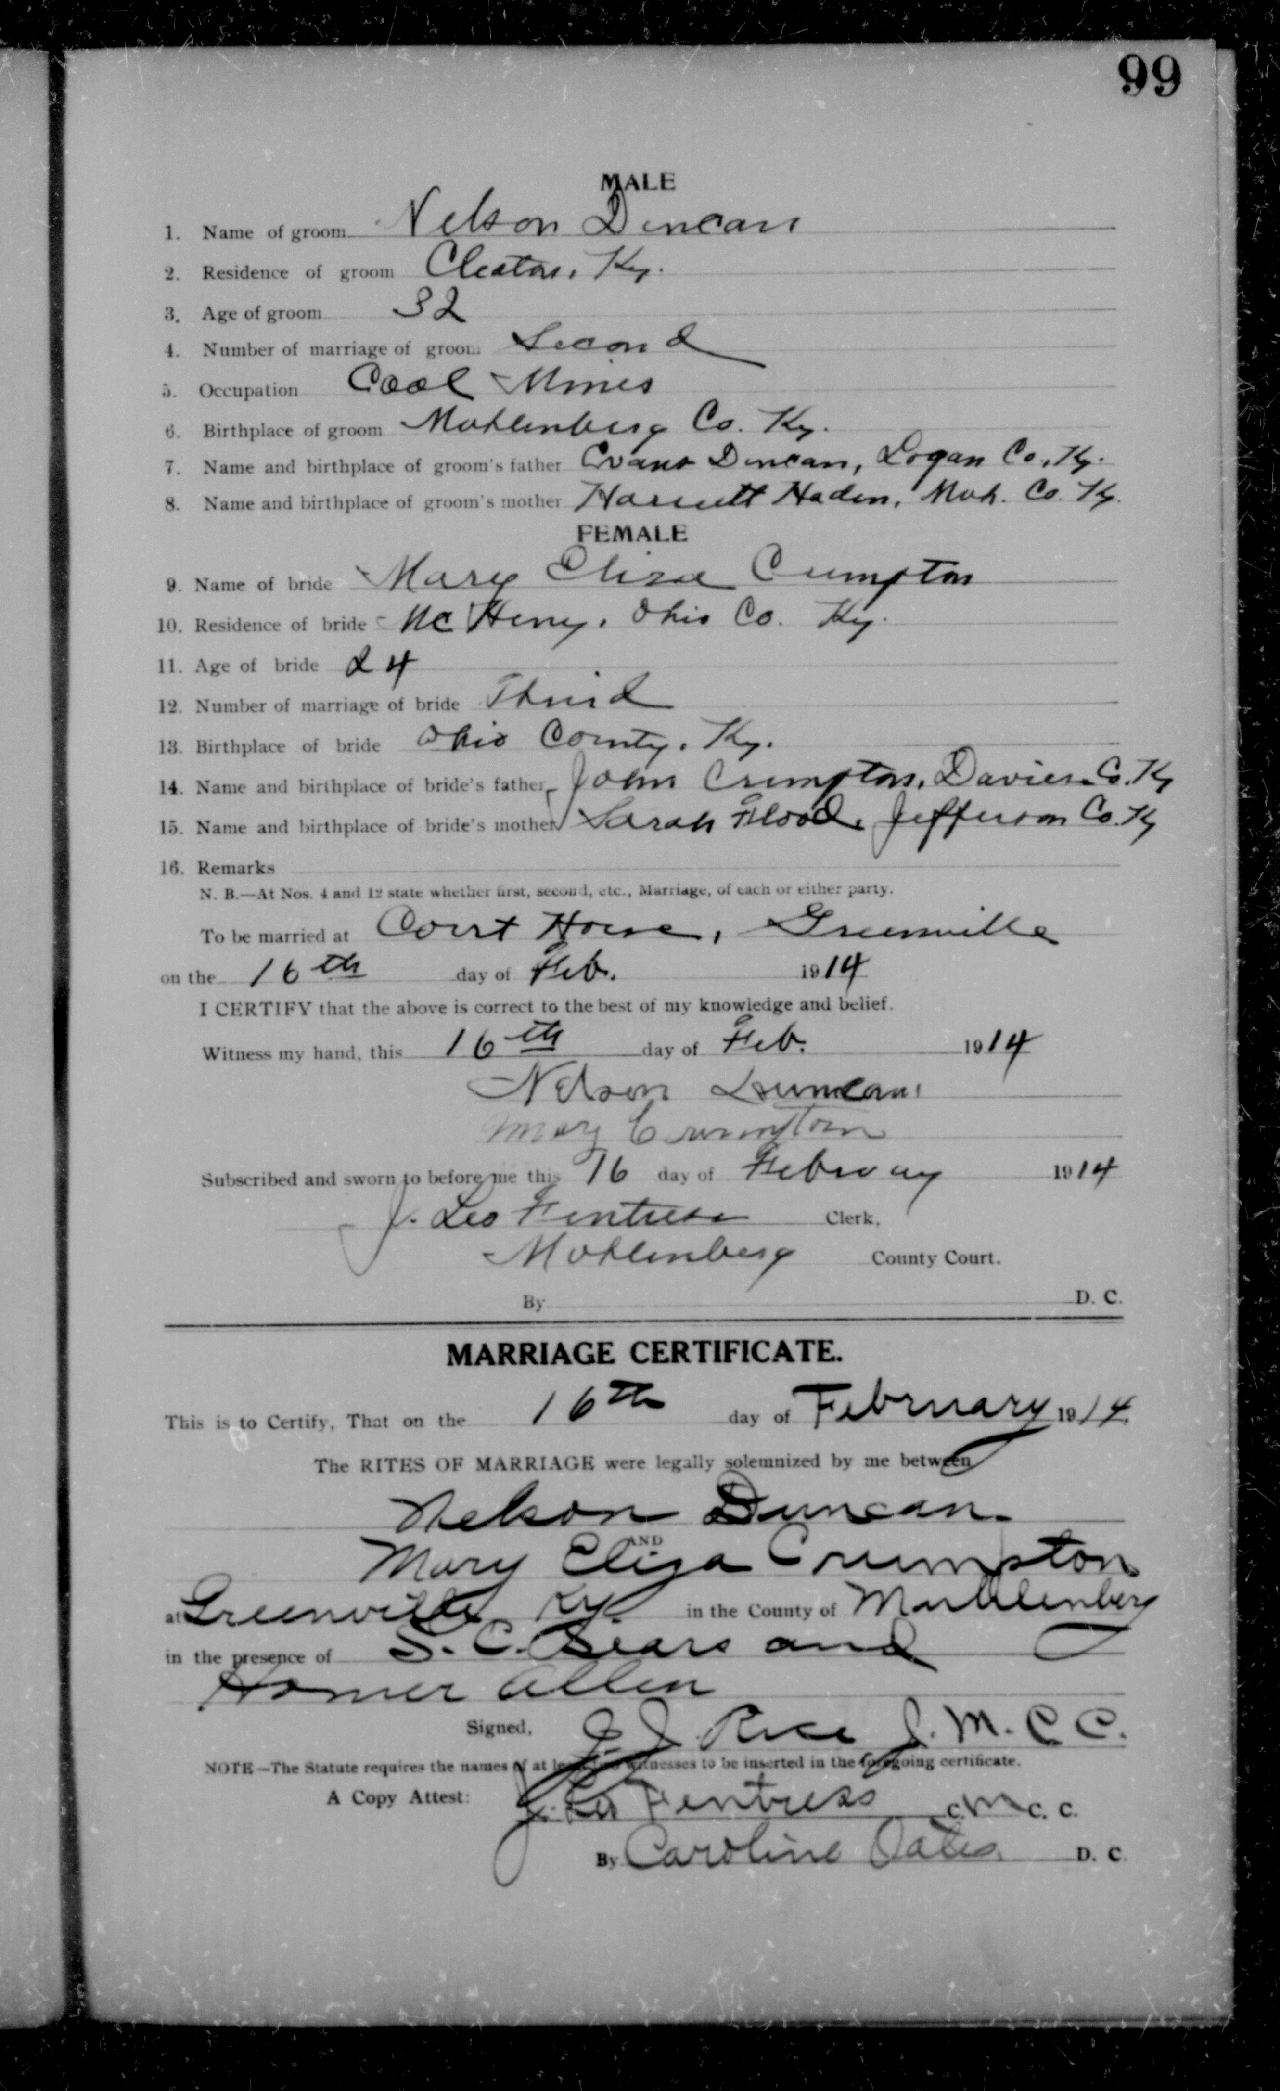 99
MALE
1. Name of groom Nelson Duncan
2. Residence of groom Cleaton, Ky.
3. Age of groom 32
4. Number of marriage of groom Second
5. Occupation Coal Mines
6. Birthplace of groom Muhlenberg Co. Ky.
7. Name and birthplace of groom's father Evans Duncan, Logan Co, Ky.
8. Name and birthplace of groom's mother Harriett Haden, Muh. Co. Ky.
FEMALE
9. Name of bride Mary Eliza Crumpton
10. Residence of bride McHenry, Ohio Co. Ky.
11. Age of bride 24
12. Number of marriage of bride Third
13. Birthplace of bride Ohio County, Ky.
14. Name and birthplace of bride's father John Crumpton, Daviess Co. Ky
15. Name and birthplace of bride's mother Sarah Flood, Jefferson Co. Ky
16. Remarks
N. B.—At Nos. 4 and 12 state whether first, second, etc., Marriage, of each or either party.
To be married at Court House, Greenville
on the 16th day of Feb. 1914
I CERTIFY that the above is correct to the best of my knowledge and belief.
Witness my hand, this 16th day of Feb. 1914
Nelson Duncan
Mary Crumpton
Subscribed and sworn to before me this 16 day of February 1914
J. Leo Fentress Clerk,
Muhlenberg County Court.
By D. C.
MARRIAGE CERTIFICATE.
This is to Certify, That on the 16th day of February 1914.
The RITES OF MARRIAGE were legally solemnized by me between
Nelson Duncan.
AND
Mary Eliza Crumpton
at Greenville Ky. in the County of Muhlenberg
in the presence of S. C. Sears and
Homer Allen
Signed, J. J. Rice J. M. C C.
NOTE—The Statute requires the names of at least two witnesses to be inserted in the foregoing certificate.
A Copy Attest: J. Leo Fentress C. M C. C.
By Caroline Oates D. C.